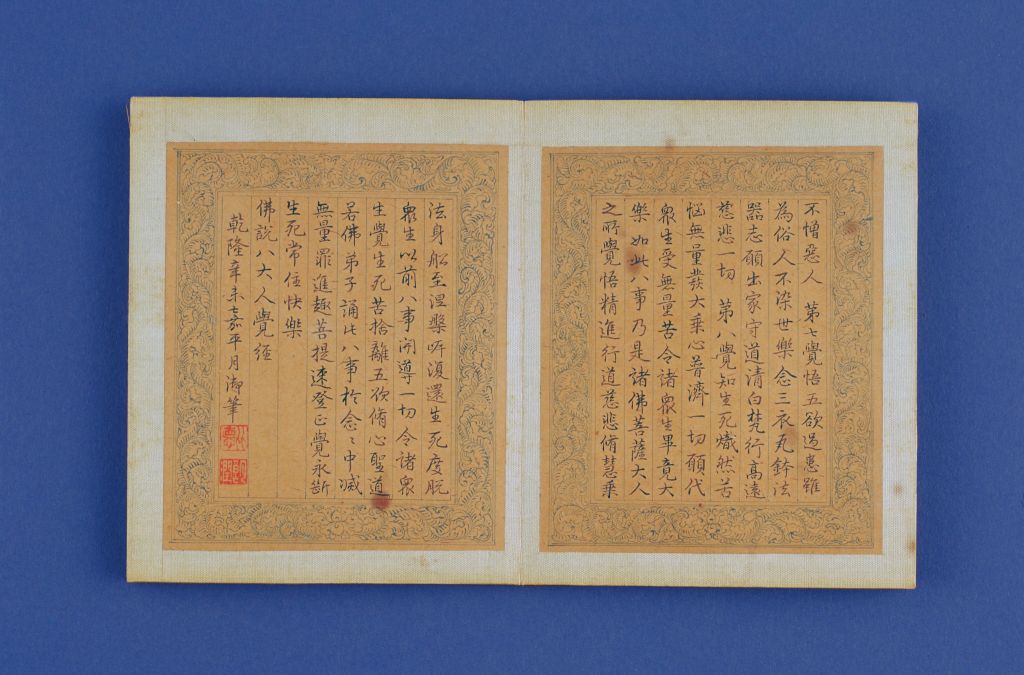 不憎惡人 第七覺悟五欲過患雖
為俗人不染世樂念三衣瓦鉢法
器志願出家守道清白梵行高遠
慈悲一切 第八覺知生死熾然苦
惱無量發大乘心普濟一切願代
衆生受無量苦令諸衆生畢竟大
樂 如此八事乃是諸佛菩薩大人
之所覺悟精進行道慈悲脩慧乘
法身船至涅槃岍復還生死度脫
衆生以前八事開導一切令諸衆
生覺生死苦捨離五欲脩心聖道
若佛弟子誦此八事於念〻中滅
無量罪進趣菩提速登正覺永斷
生死常住快樂
佛說八大人覺經
乾隆辛未嘉平月御筆